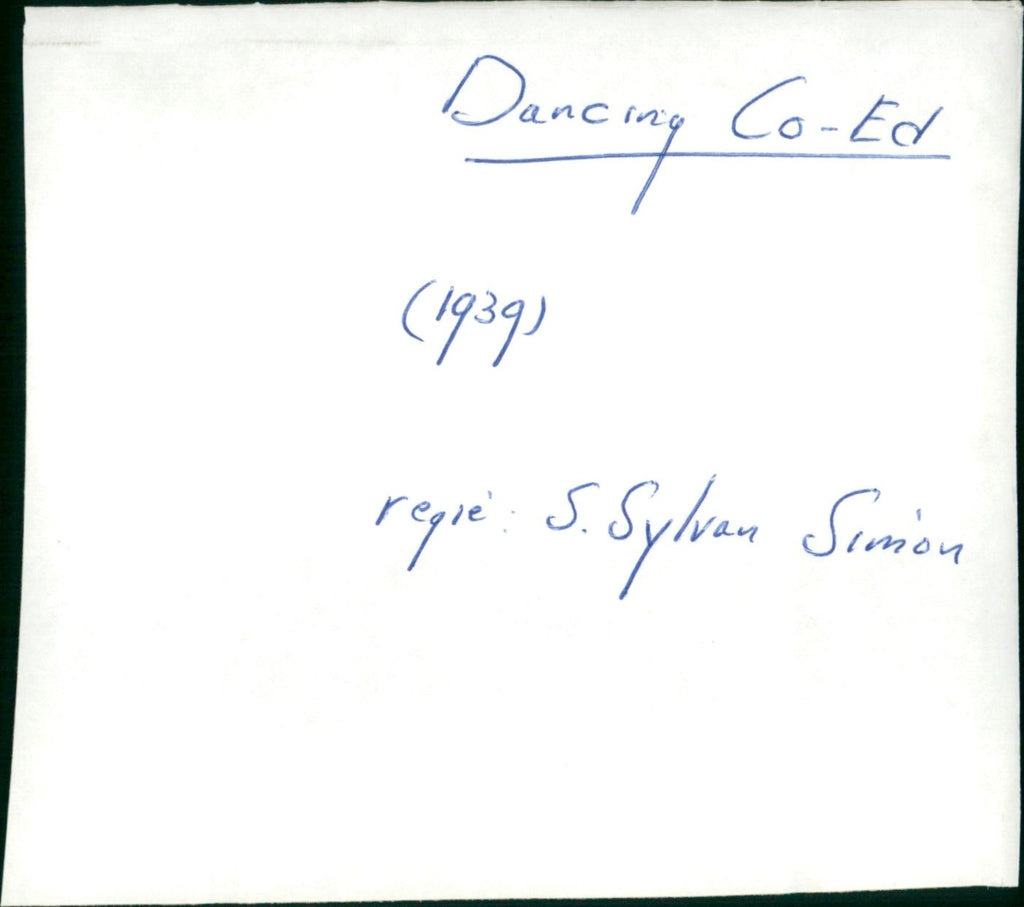 Dancing Co-Ed
(1939)
regie: S. Sylvan Simon